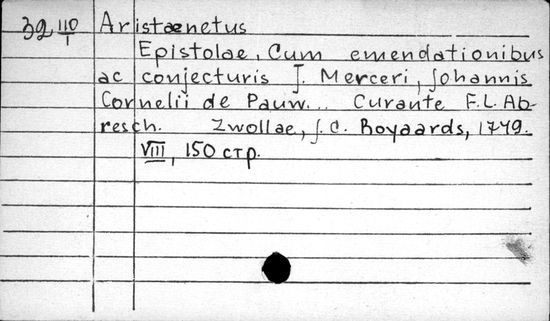 39 110/I Aristaenetus
Epistolae, Cum emendationibus
ac conjecturis J. Merceri, Johannis
Cornelii de Pauw... Curante F.L. Ab-
resch. Zwollae, J. C. Royaards, 1749.
VIII, 150 стр.